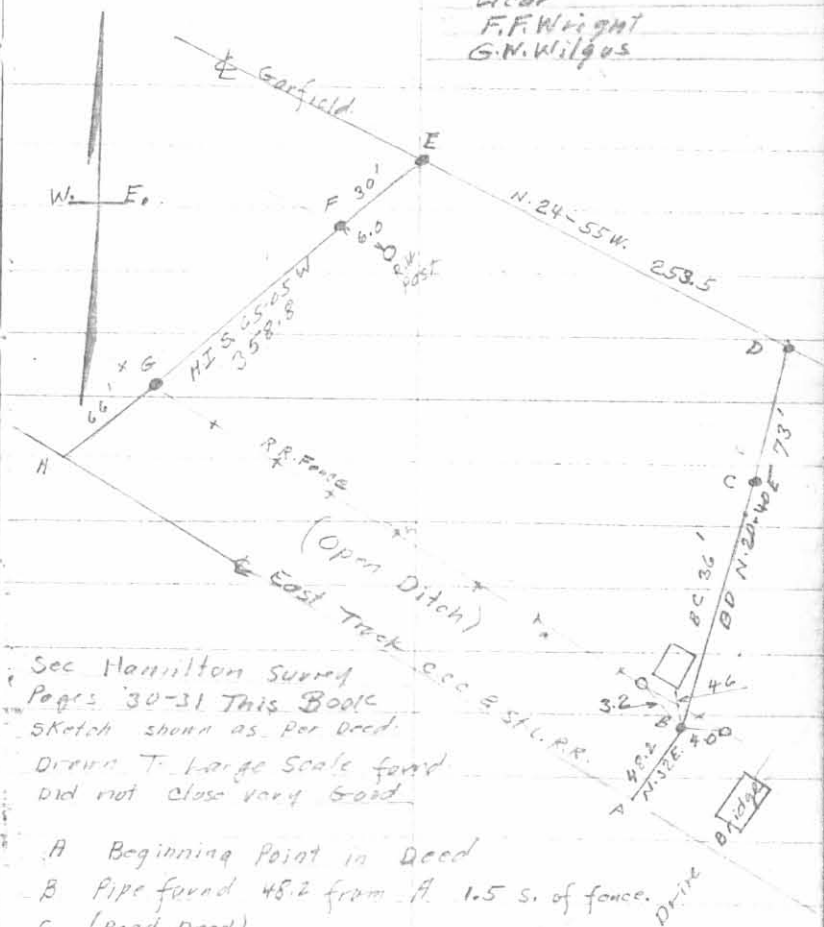 F.F. Wright
G.N. Wilgus
℄ Garfield.
E
W. E.
F 30'
6.0
R.W. Post
N. 24-55 W. 253.5
H I S. 65.05 W
358.8
D
G
66'
H
73'
C
R.R. Fence
(Open Ditch)
BC 36'
BD N. 20-40 E
℄ East Track C.C.C. & St. L. R.R.
46
3.2
B
48.2
N. 32 E.
A
Bridge
Drive
See Hamilton Survey
Pages 30-31 This Book
Sketch shown as Per Deed.
Drawn T. Large Scale found
Did not Close very Good
A Beginning Point in Deed
B Pipe found 48.2 from A. 1.5 s. of fence.
C (Read Deed)